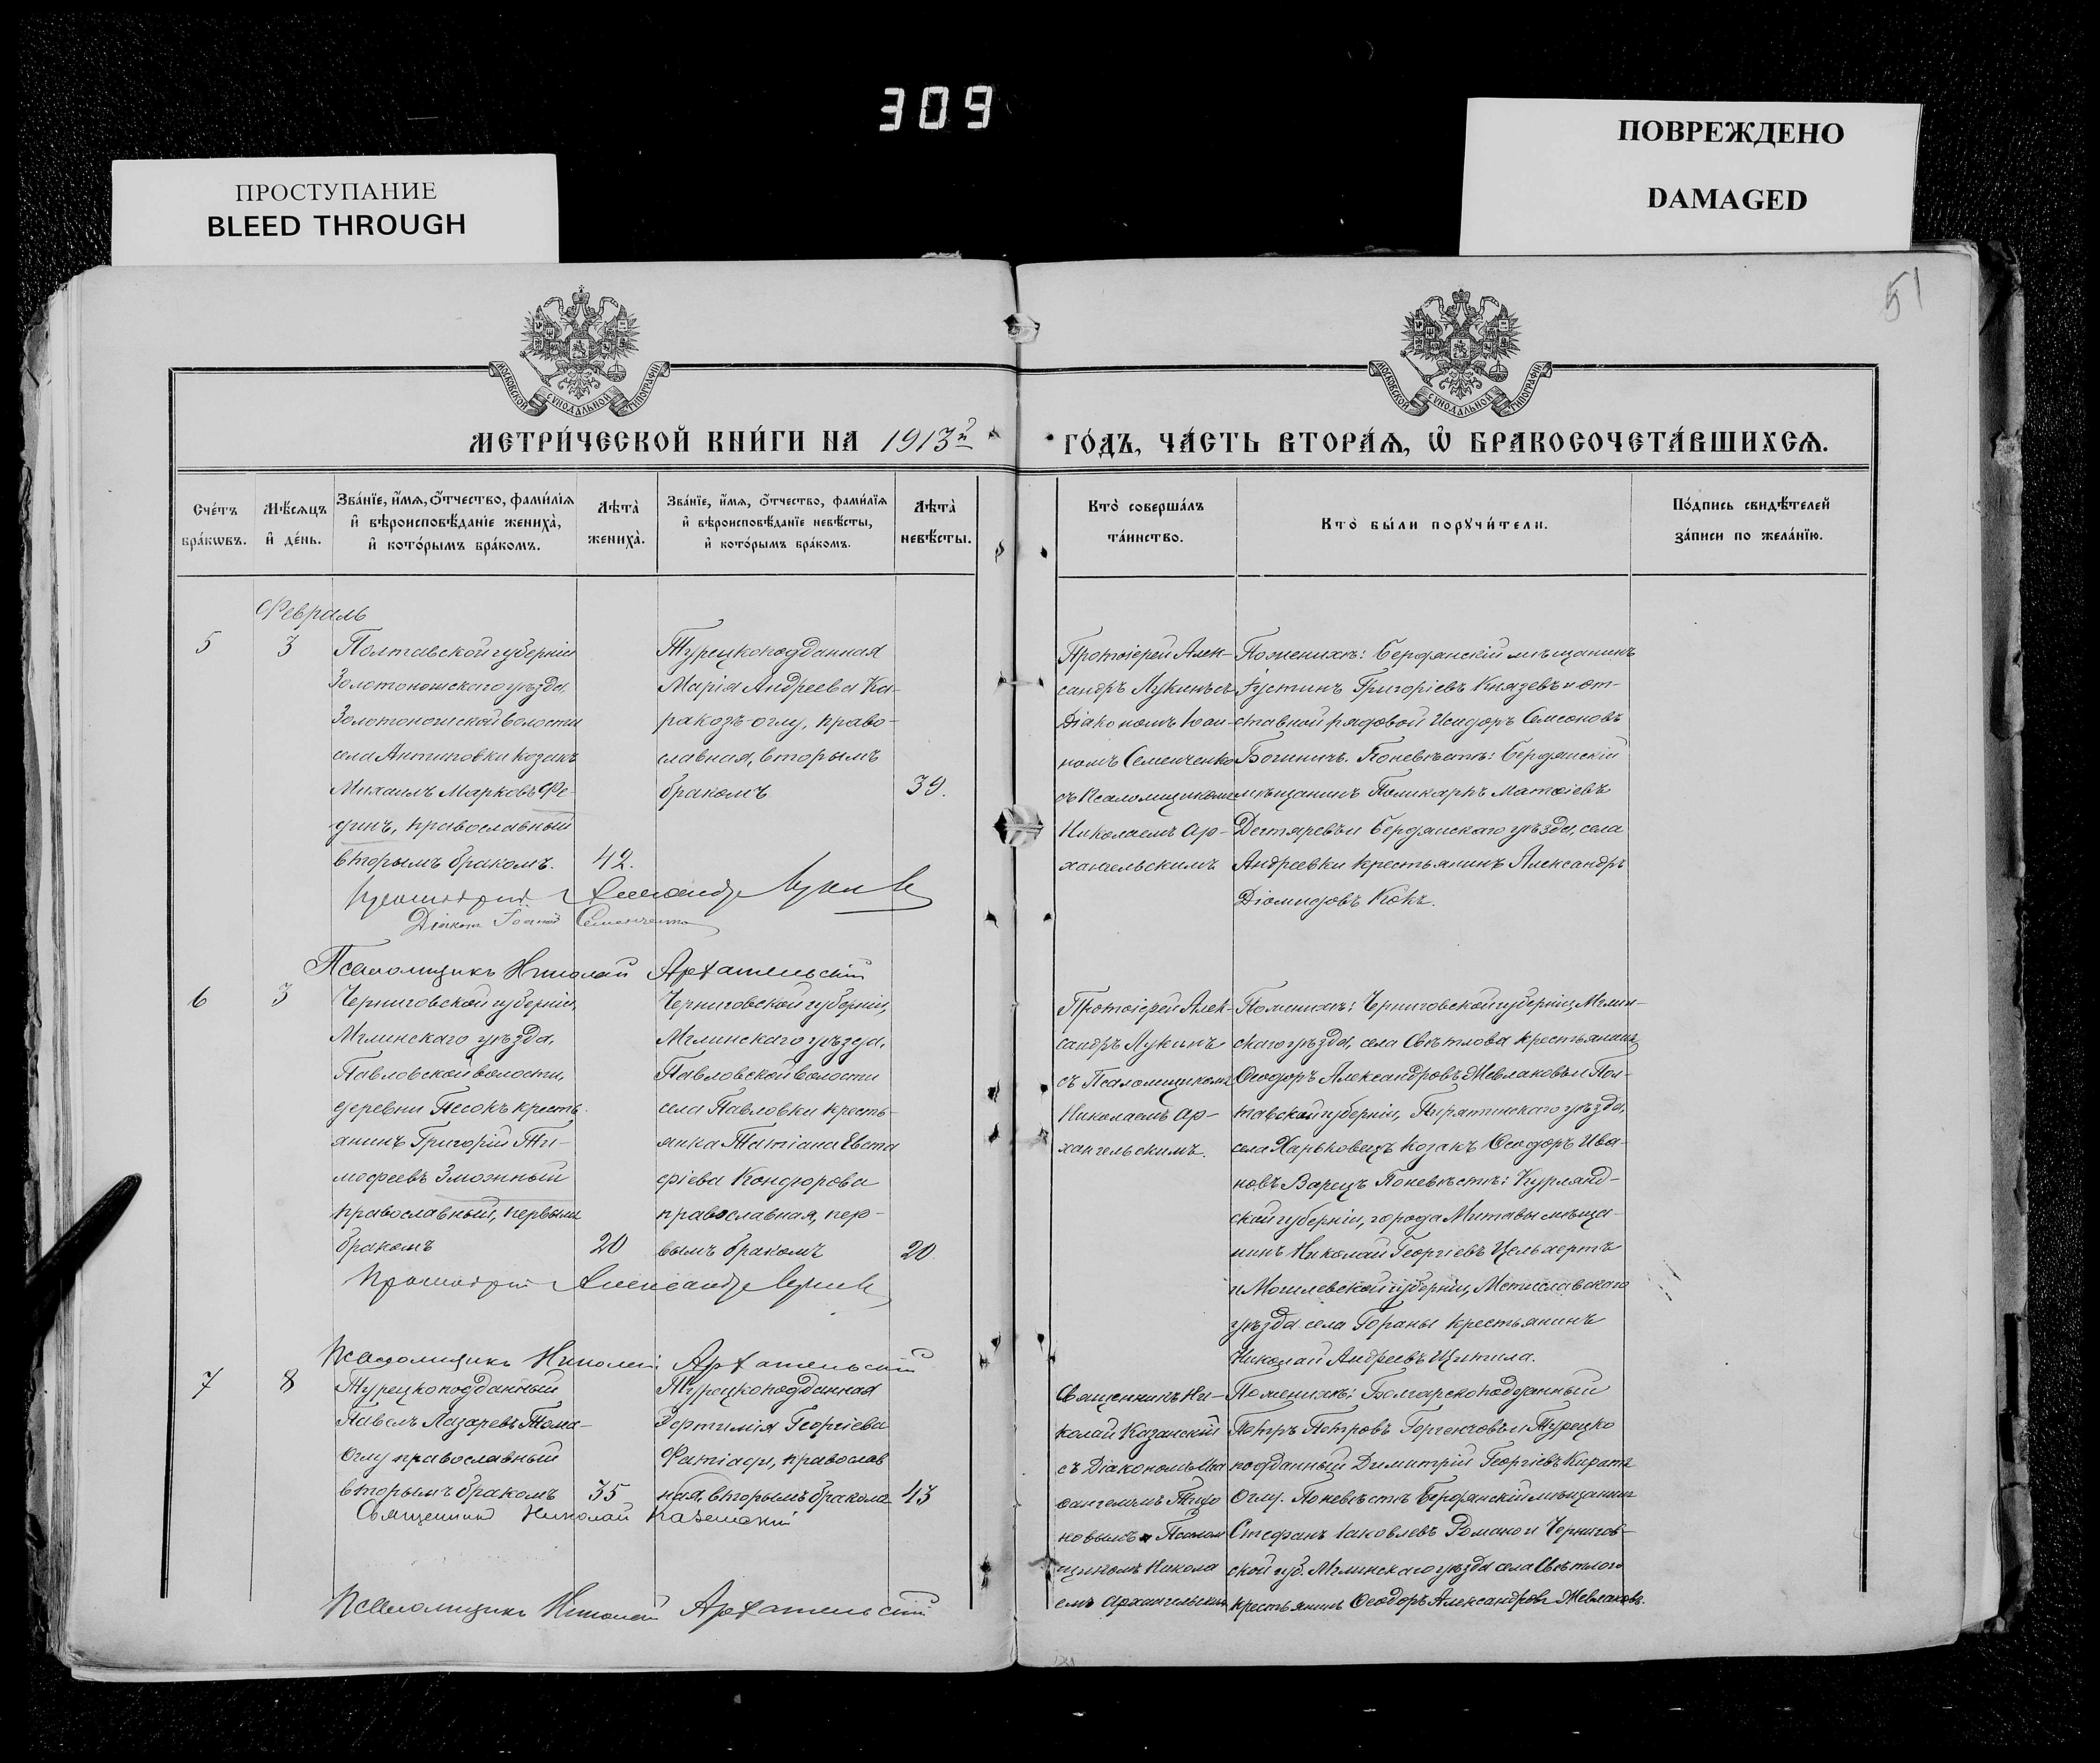 309
ПРОСТУПАНИЕ
BLEED THROUGH
ПОВРЕЖДЕНО
DAMAGED
51
МОСКОВСКОЙ СѴНОДАЛЬНОЙ ТИПОГРАФІИ
МОСКОВСКОЙ СѴНОДАЛЬНОЙ ТИПОГРАФІИ
МЕТРИ́ЧЕСКОЙ КНИ́ГИ НА 1913й
ГО́ДЪ, ЧА́СТЬ ВТОРА́Ѧ, Ѡ҆ БРАКОСОЧЕТА́ВШИХСѦ.
Сче́тъ
бра́кѡвъ.
Мѣ́сѧцъ
и҆ де́нь.
Зва́нїе, и҆́мѧ, ѻ҆́тчество, фами́лїѧ
и҆ вѣроисповѣ́данїе жениха̀,
и҆ кото́рымъ бра́комъ.
Лѣта̀
жениха̀.
Зва́нїе, и҆́мѧ, ѻ҆́тчество, фами́лїѧ
и҆ вѣроисповѣ́данїе невѣ́сты,
и҆ кото́рымъ бра́комъ.
Лѣта̀
невѣ́сты.
Кто̀ соверша́лъ
та́инство.
Кто̀ бы́ли порꙋчи́тели.
По́дпись свидѣ́телей
за́писи по жела́нїю.
Февраль
5
3
Полтавской губерніи
Золотоношскаго уѣзда,
Золотоношской волости
села Антиповки козакъ
Михаилъ Марковъ Фе-
динъ, православный
вторымъ бракомъ.
42.
Турецкоподданная
Марія Андреева Ка-
ракозъ-оглу, право-
славная, вторымъ
бракомъ
39.
Протоіерей Алек-
сандръ Лукинъ съ
Діакономъ Іоан-
номъ Семенченко
съ Псаломщикомъ
Николаемъ Ар-
хангельскимъ
По женихѣ: Бердянскій мѣщанинъ
Іустинъ Григоріевъ Князевъ и от-
ставной рядовой Исидоръ Семеновъ
По невѣстѣ: Бердянскій
мѣщанинъ Поликарпъ Матѳіевъ
Дегтяревъ и Бердянскаго уѣзда, села
Андреевки крестьянинъ Александръ
Діомидовъ Кокъ.
Протоіерей Александръ Лукинъ
Діаконъ Іоаннъ Семенченко
Псаломщикъ Николай Архангельскій
6
3
Черниговской губерніи,
Мглинскаго уѣзда,
Павловской волости,
деревни Песокъ кресть-
янинъ Григорій Ти-
мофеевъ Зможный
православный, первымъ
бракомъ
20
Черниговской губерніи,
Мглинскаго уѣзда,
Павловской волости
села Павловки кресть-
янка Татіана Евста
фіева Кондорова
православная, пер-
вымъ бракомъ
20.
Протоіерей Алек-
сандръ Лукинъ
съ Псаломщикомъ
Николаемъ Ар-
хангельскимъ.
По женихѣ: Черниговской губерніи, Мглин-
скаго уѣзда, села Свѣтлова крестьянинъ
Ѳеодоръ Александровъ Мевлаковъ и Пол-
тавской губерніи, Пирятинскаго уѣзда,
села Харьковецъ козакъ Ѳеодоръ Ива-
новъ Варецъ По невѣстѣ: Курлянд-
ской губерніи, города Митавы мѣща-
нинъ Николай Георгіевъ Цельмертъ
и Могилевской губерніи, Мстиславскаго
уѣзда села Гораны крестьянинъ
Николай Андреевъ Щитила.
Протоіерей Александръ Лукинъ
Псаломщикъ Николай Архангельскій
7
8
Турецкоподданный
Павелъ Лазаревъ Тома-
Оглу православный
вторымъ бракомъ
35
Турецкоподданная
Георгіева
православ
ная, вторымъ бракомъ
43
Священникъ Ни-
колай Казанскій
съ Діакономъ
Псалом
щикомъ Никола
емъ Архангельскимъ
По женихѣ: Болгарскоподданный
Петръ Петровъ и Турецко
подданный Димитрій Георгіевъ
Оглу. По невѣстѣ Бердянскій мѣщанинъ
Стефанъ Іаковлевъ Романо и Чернигов-
ской губ. Мглинскаго уѣзда села Свѣтлого
крестьянинъ Ѳеодоръ Александровъ Мевлаковъ.
Священникъ Николай Казанскій
Псаломщикъ Николай Архангельскій